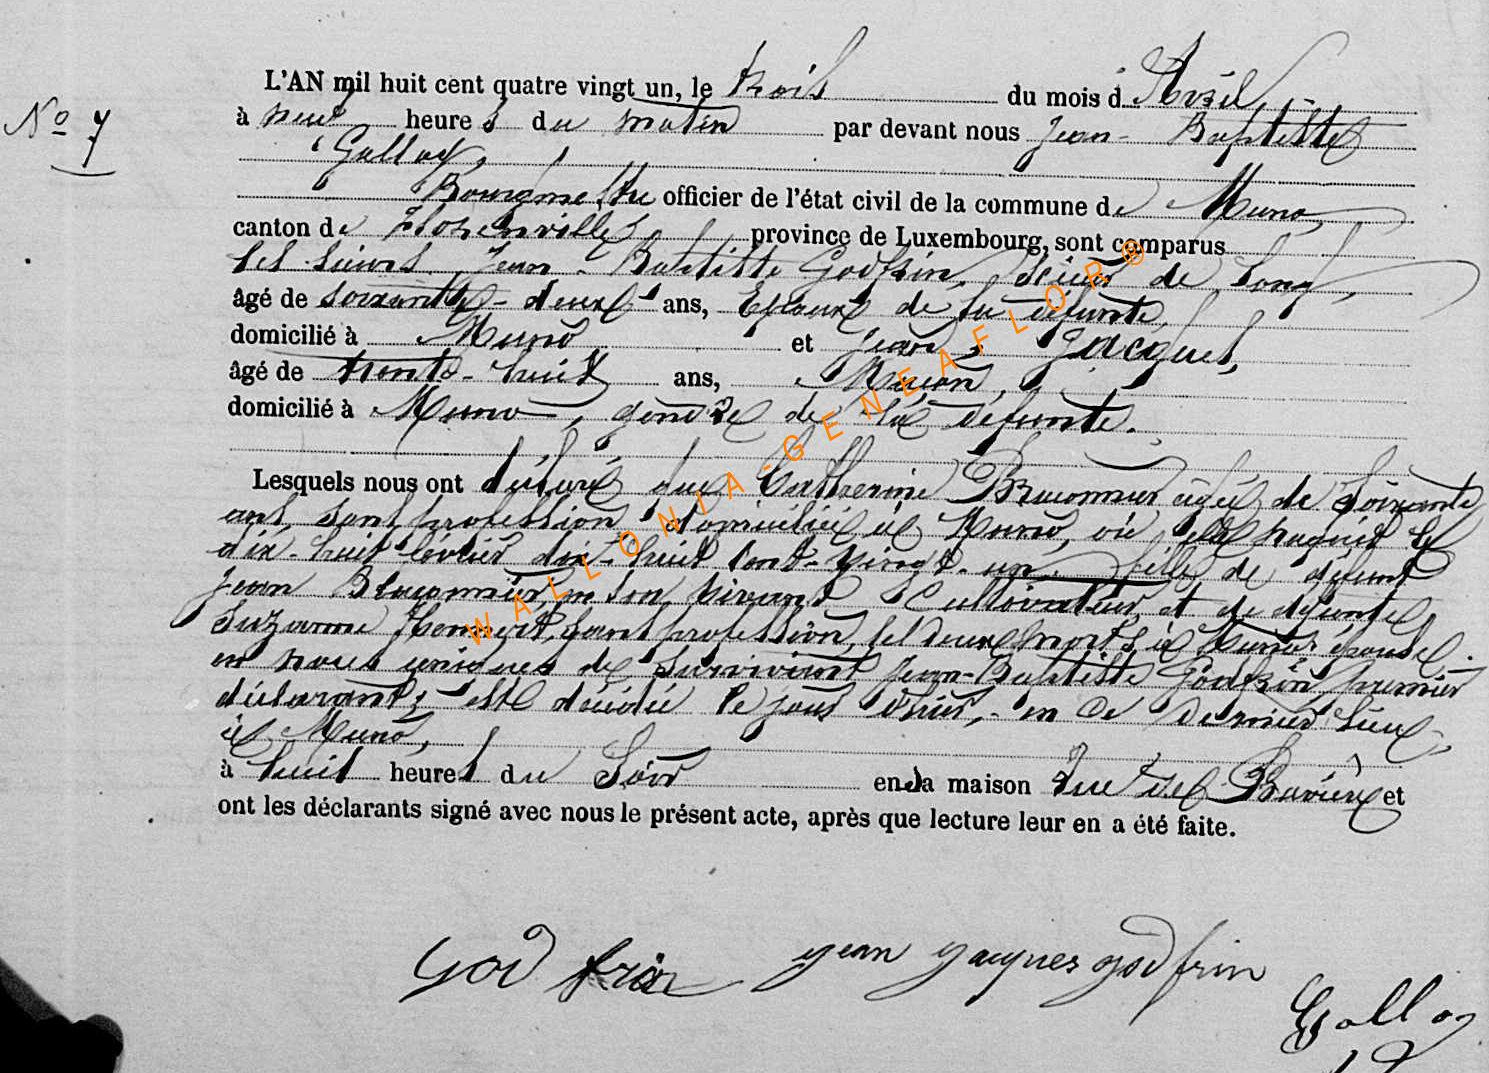 No 7
L'AN mil huit cent quatre vingt un, le trois du mois d'Avril,
à neuf heures du matin par devant nous Jean-Baptiste
Galloy,
Bourgmestre officier de l'état civil de la commune de Muno,
canton de Florenville, province de Luxembourg, sont comparus
les sieurs Jean-Baptiste Godfrin, Scieur de long,
âgé de soixante-deux ans, Epoux de la défunte,
domicilié à Muno et Jean Jacques,
âgé de trente-huit ans, Maçon,
domicilié à Muno, gendre de la défunte.
Lesquels nous ont déclaré que Catherine Braconnier âgée de soixante
ans, sans profession, domiciliée à Muno, où elle naquit le
dix-huit février dix-huit cent-vingt-un, fille de défunt
Jean Braconnier, en son vivant Cultivateur et de défunte
Suzanne, sans profession, les deux morts à Muno, épouse
en noces uniques de survivant Jean-Baptiste Godfrin, premier
déclarant; est décédée le jour d'hier, en ce dernier lieu
à Muno,
à huit heures du Soir en sa maison rue de et
ont les déclarants signé avec nous le présent acte, après que lecture leur en a été faite.
WALLONIA-GENEAFLOR®
Godfrin Jean Jacques godfrin
Galloy